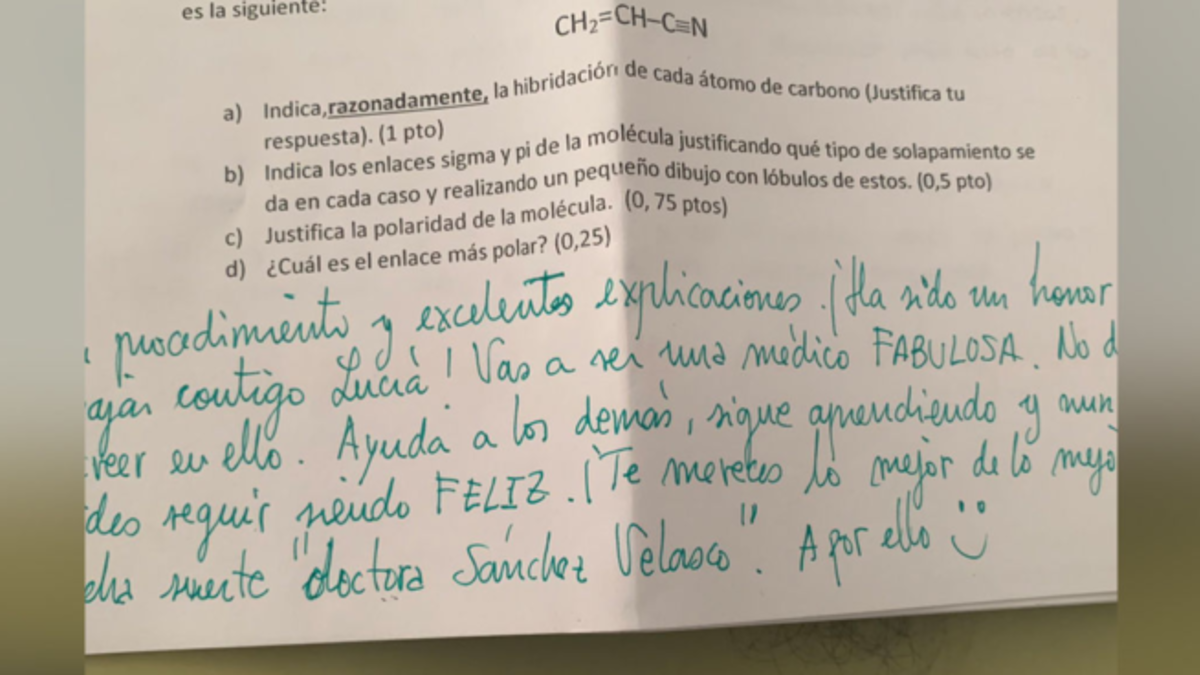 es la siguiente:
CH₂=CH–C≡N
a) Indica, razonadamente, la hibridación de cada átomo de carbono (Justifica tu
respuesta). (1 pto)
b) Indica los enlaces sigma y pi de la molécula justificando qué tipo de solapamiento se
da en cada caso y realizando un pequeño dibujo con lóbulos de estos. (0,5 pto)
c) Justifica la polaridad de la molécula. (0, 75 ptos)
d) ¿Cuál es el enlace más polar? (0,25)
procedimiento y excelentes explicaciones. ¡Ha sido un honor
ajar contigo Lucía! Vas a ser una médico FABULOSA. No d
reer en ello. Ayuda a los demás, sigue aprendiendo y nun
des seguir siendo FELIZ. ¡Te mereces lo mejor de lo mejo
cha suerte "doctora Sánchez Velasco". A por ello :)